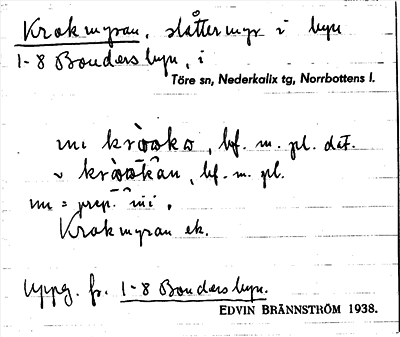 Krokmyran, slåttermyr i byn
1-8 Bondersbyn, i
Töre sn, Nederkalix tg, Norrbottens l.
bf. m. pl. dat.
bf. m. pl.
= prep. i
Krokmyran ek.
Uppg. fr. 1-8 Bondersbyn.
EDVIN BRÄNNSTRÖM 1938.